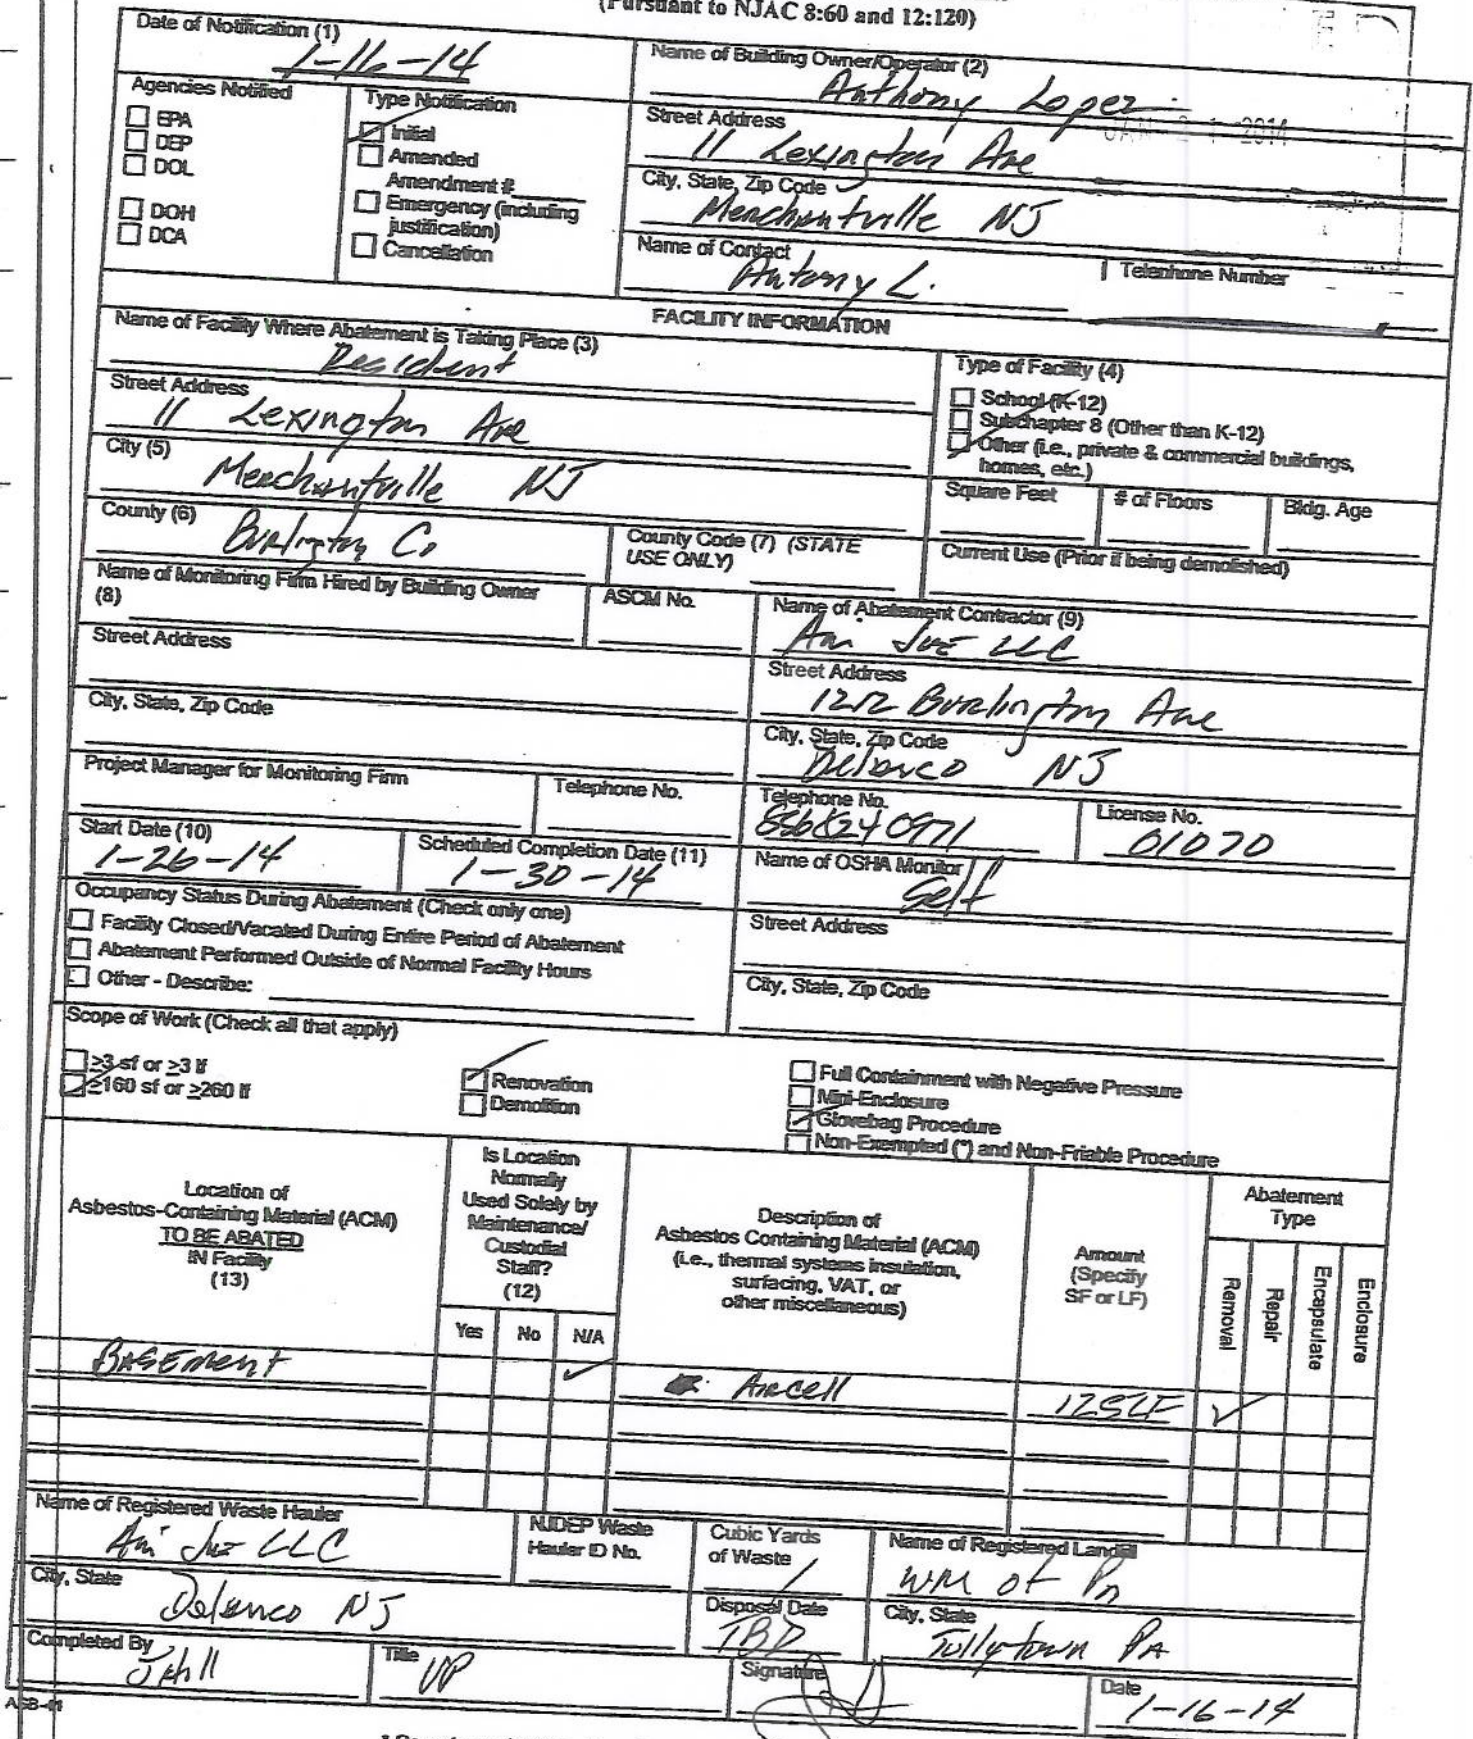 (Pursuant to NJAC 8:60 and 12:120)
Date of Notification (1)
1-16-14
Name of Building Owner/Operator (2)
Anthony Lopez
Agencies Notified
EPA
DEP
DOL
DOH
DCA
Type Notification
Initial
Amended
Amendment #
Emergency (including
justification)
Cancellation
Street Address
11 Lexington Ave
JAN 21 2014
City, State, Zip Code
Merchantville NJ
Name of Contact
Antony L.
Telephone Number
FACILITY INFORMATION
Name of Facility Where Abatement is Taking Place (3)
Resident
Street Address
11 Lexington Ave
City (5)
Merchantville NJ
County (6)
Burlington Co
County Code (7) (STATE
USE ONLY)
Type of Facility (4)
School (K-12)
Subchapter 8 (Other than K-12)
Other (i.e., private & commercial buildings,
homes, etc.)
Square Feet
# of Floors
Bldg. Age
Current Use (Prior if being demolished)
Name of Monitoring Firm Hired by Building Owner
(8)
ASCM No.
Street Address
City, State, Zip Code
Project Manager for Monitoring Firm
Telephone No.
Name of Abatement Contractor (9)
LLC
Street Address
1212 Burlington Ave
City, State, Zip Code
Delanco NJ
Telephone No.
8568240971
License No.
01070
Start Date (10)
1-26-14
Scheduled Completion Date (11)
1-30-14
Name of OSHA Monitor
Self
Street Address
City, State, Zip Code
Occupancy Status During Abatement (Check only one)
Facility Closed/Vacated During Entire Period of Abatement
Abatement Performed Outside of Normal Facility Hours
Other - Describe:
Scope of Work (Check all that apply)
≥3 sf or ≥3 lf
≥160 sf or ≥260 lf
Renovation
Demolition
Full Containment with Negative Pressure
Mini-Enclosure
Glovebag Procedure
Non-Exempted (*) and Non-Friable Procedure
Location of
Asbestos-Containing Material (ACM)
TO BE ABATED
IN Facility
(13)
Is Location
Normally
Used Solely by
Maintenance/
Custodial
Staff?
(12)
Yes No N/A
Description of
Asbestos Containing Material (ACM)
(i.e., thermal systems insulation,
surfacing, VAT, or
other miscellaneous)
Amount
(Specify
SF or LF)
Abatement
Type
Removal
Repair
Encapsulate
Enclosure
BASEment ✓ Aircell 125LF ✓
Name of Registered Waste Hauler
LLC
NJDEP Waste
Hauler ID No.
Cubic Yards
of Waste
1
Name of Registered Landfill
WM of Pa
City, State
Delanco NJ
Disposal Date
TBD
City, State
Tullytown PA
Completed By
Title
VP
Signature
Date
1-16-14
ASB-41